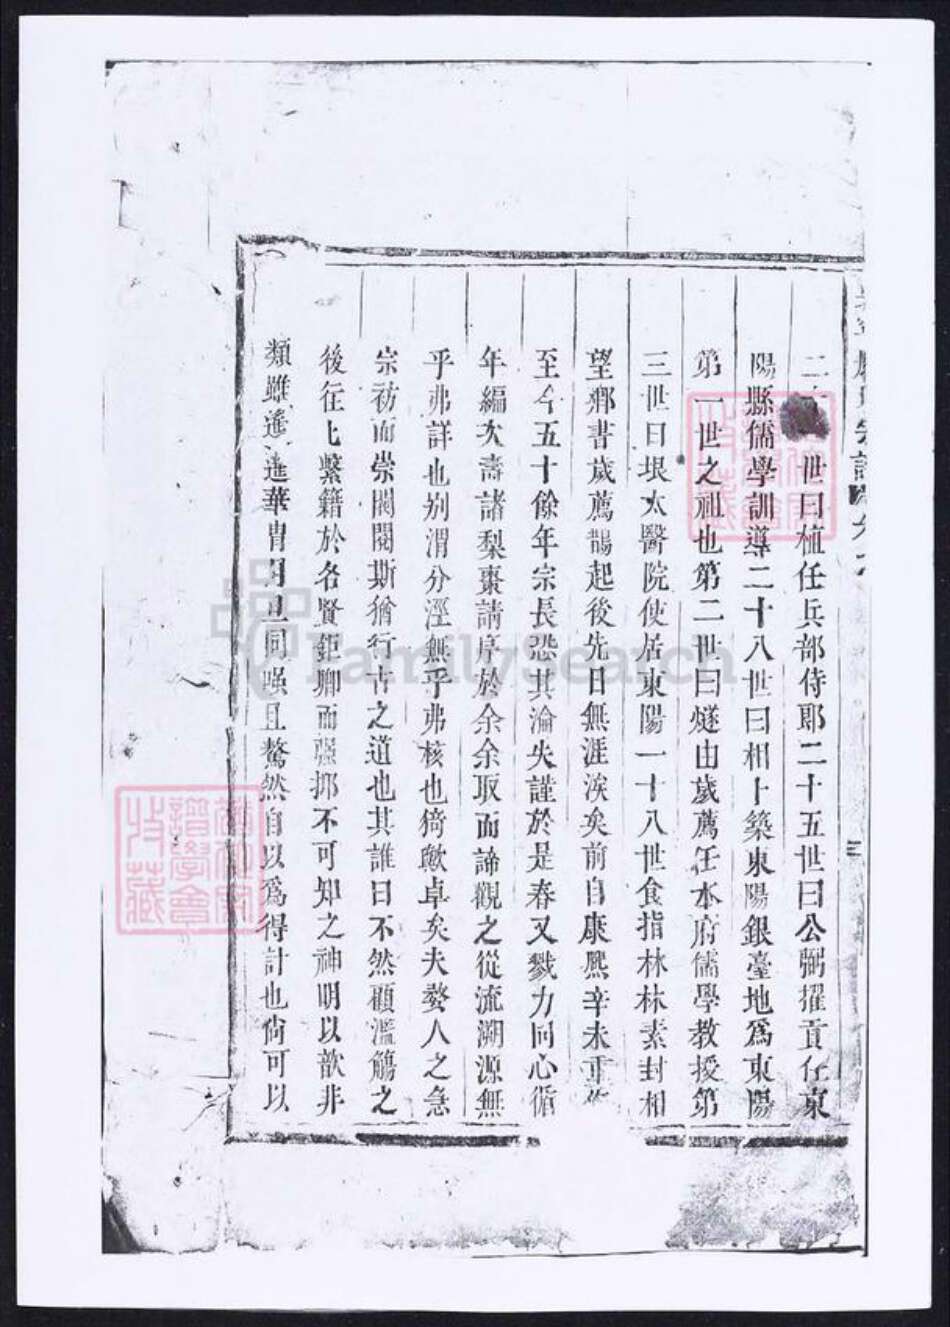 二世曰植任兵部侍郎二十五世曰公弼擢貢任東
陽縣儒學訓導二十八世曰相卜築東陽銀臺地爲東陽
第一世之祖也第二世曰燧由歲薦任本府儒學教授第
三世曰垠太醫院使居東陽一十八世食指林林素封相
望鄉書歲薦鵲起後先日無涯涘矣前自康熙辛未重修
至今五十餘年宗長恐其淪失謹於是春又戮力同心循
年編次壽諸梨棗請序於余余取而諦觀之從流溯源無
乎弗詳也别渭分涇無乎弗核也猗歟卓矣夫婺人之急
宗祊而崇閥閱斯猶行古之道也其誰曰不然顧濫觴之
後往七繫籍於名賢鉅卿而强挪不可知之神明以歆非
類雖遙遙華冑同且驁然自以爲得計也尙可以
譜學會
收藏
收藏
FamilySearch